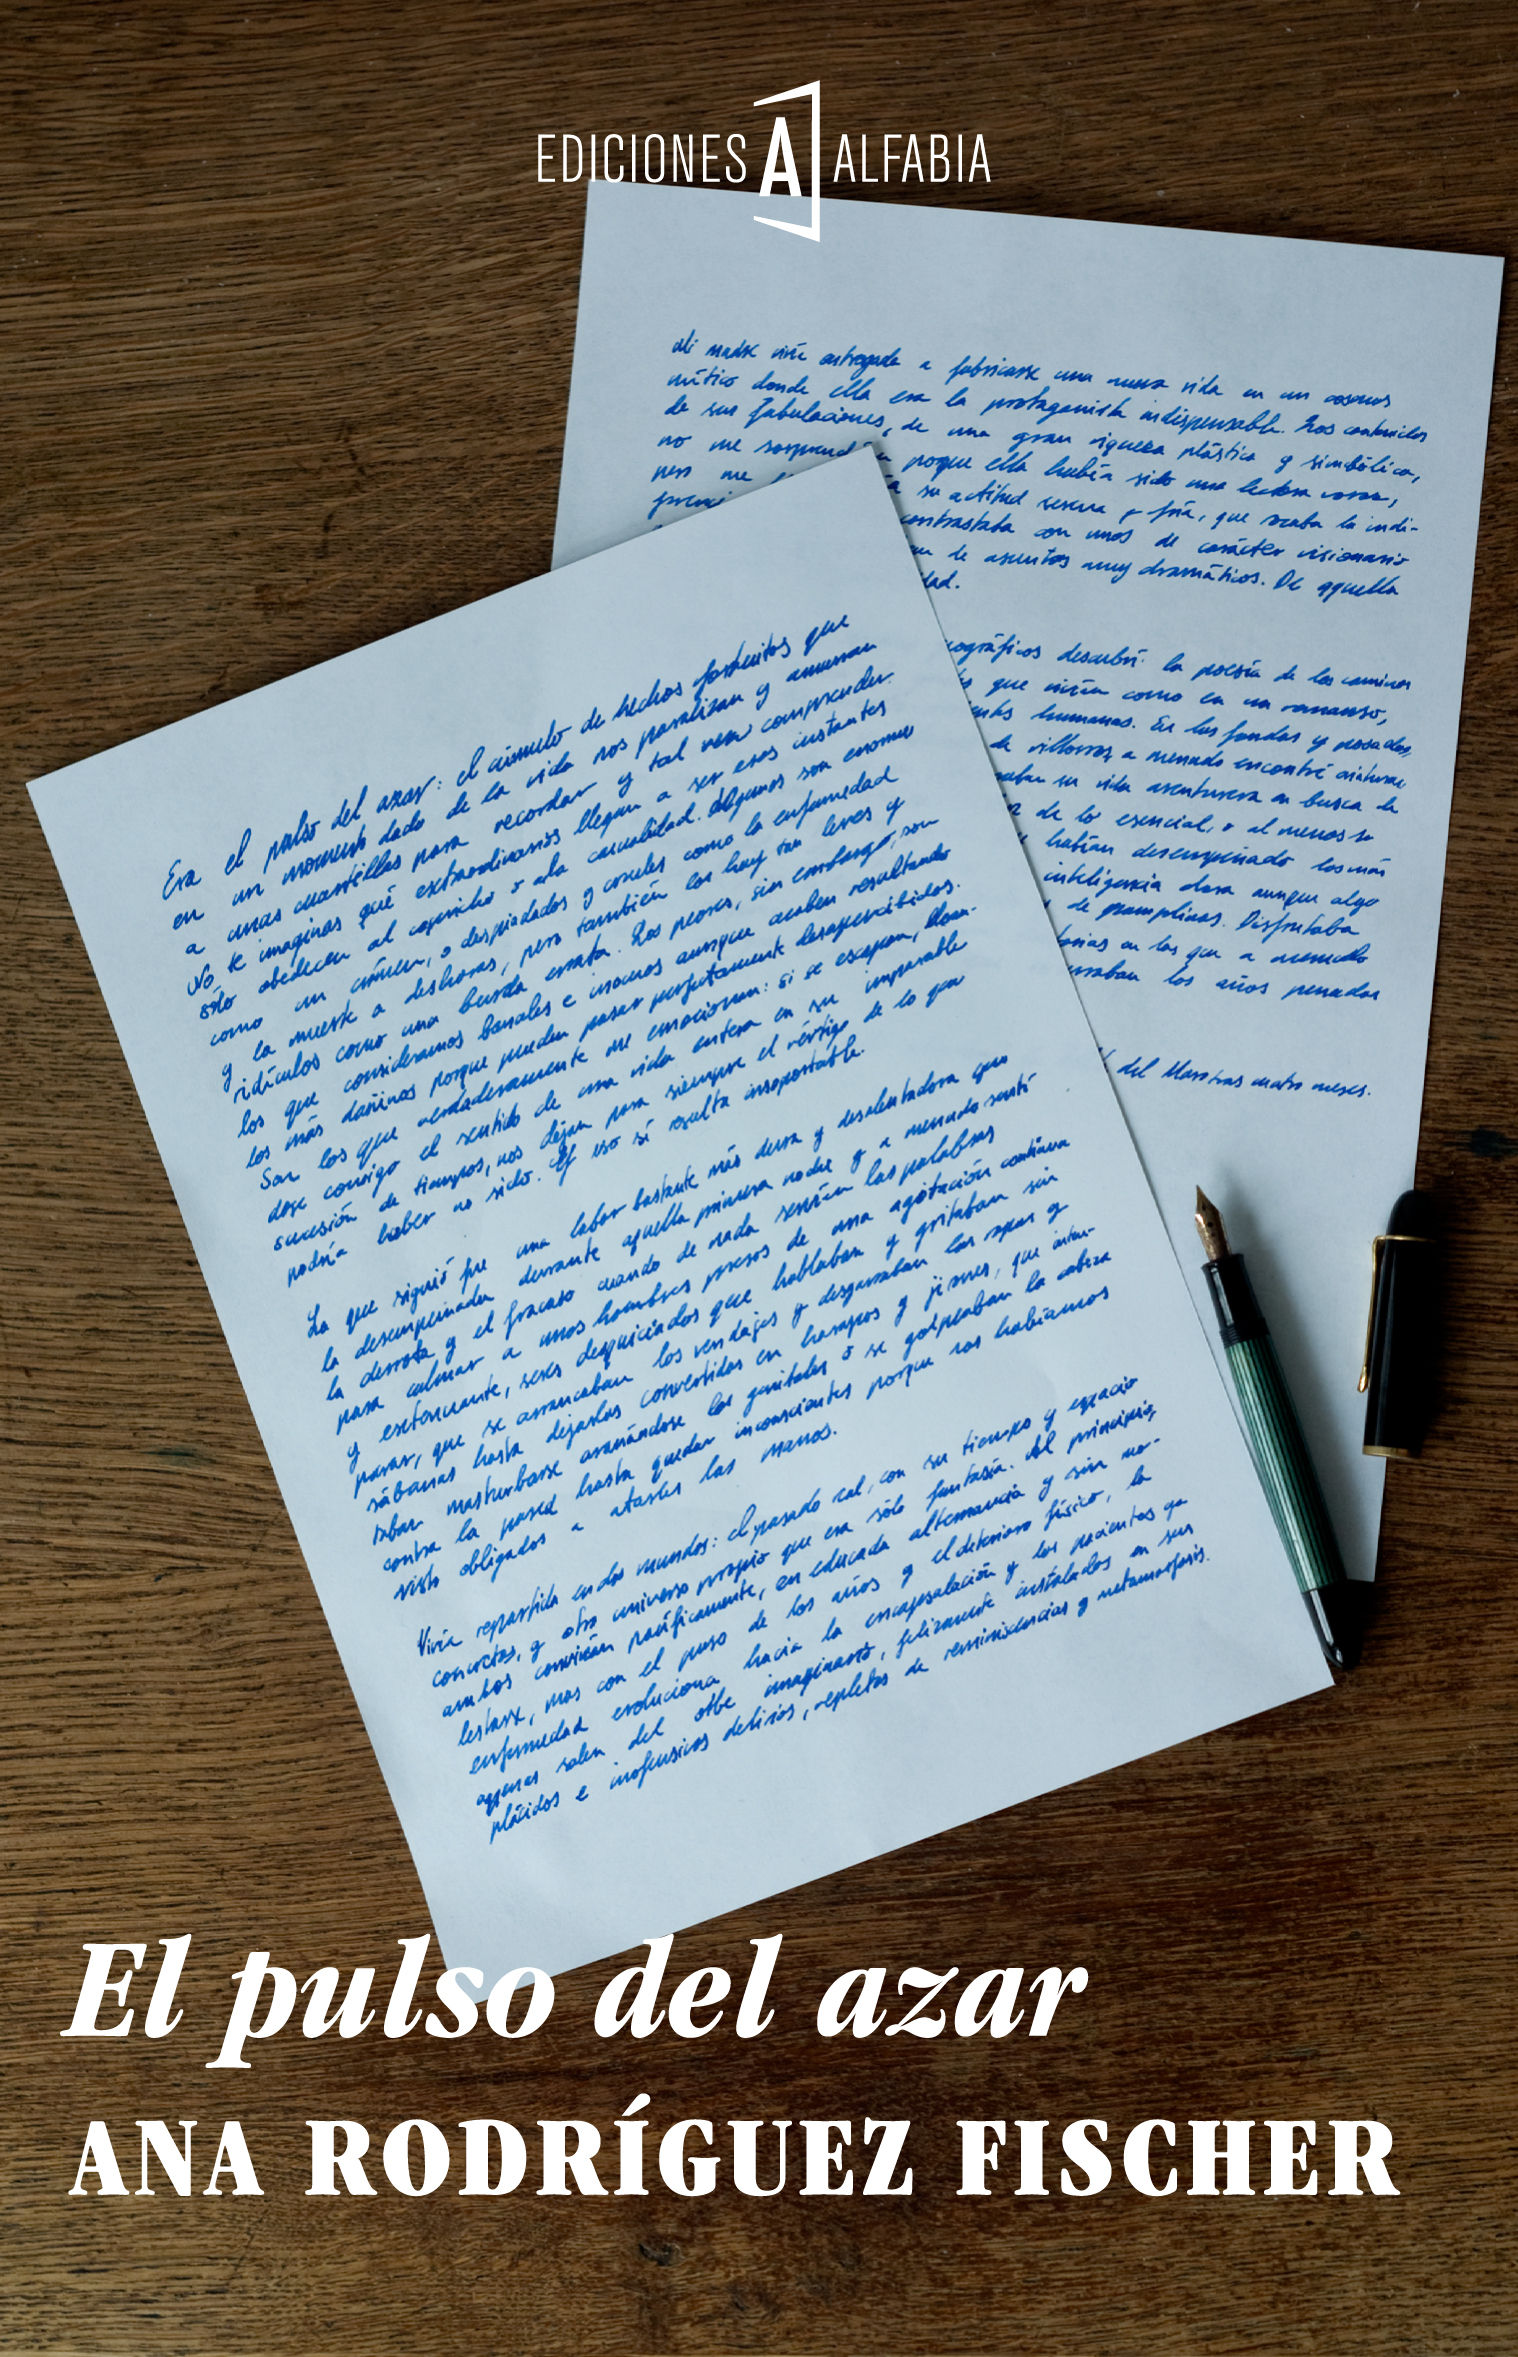 EDICIONES A ALFABIA
Mi madre vivía entregada a fabricarse una nueva vida en un cosmos
mítico donde ella era la protagonista indispensable. Los contenidos
de sus fabulaciones, de una gran riqueza plástica y simbólica,
no me porque ella había sido una lectora voraz,
pero me su actitud serena y fría, que rozaba la indi-
contrastaba con unos de carácter visionario
de asuntos muy dramáticos. De aquella
descubrí la poesía de los caminos
que vivían como en un remanso,
humanos. En las fondas y posadas,
de villorros, a menudo encontré
su vida aventurera en busca de
de lo esencial, o al menos
habían desempeñado los más
inteligencia clara aunque algo
de pamplinas. Disfrutaba
en las que a menudo
los años pasados
del Maestras cuatro meses.
Era el pulso del azar: el cúmulo de hechos fortuitos que
en un momento dado de la vida nos paralizan y amarran
a unas cuartillas para recordar y tal vez comprender.
No te imaginas qué extraordinarios llegan a ser esos instantes
sólo obedecen al capricho o a la casualidad. Algunos son enormes
como un crimen, o despiadados y crueles como la enfermedad
y la muerte a deshoras, pero también los hay tan leves y
ridículos como una burda errata. Los peores, sin embargo, son
los que consideramos banales e inocuos aunque acaben resultando
los más dañinos porque pueden pasar perfectamente desapercibidos.
Son los que verdaderamente me emocionan: si se escapan, lleván-
dose consigo el sentido de una vida entera en su imparable
sucesión de tiempos, nos dejan para siempre el vértigo de lo que
podría haber no sido. Y eso sí resulta insoportable.
Lo que siguió fue una labor bastante más dura y desalentadora que
la desempeñada durante aquella primera noche y a menudo sentí
la derrota y el fracaso cuando de nada servían las palabras
para calmar a unos hombres presos de una agitación continua
y extenuante, seres desquiciados que hablaban y gritaban sin
parar, que se arrancaban los vendajes y desgarraban las ropas y
sábanas hasta dejarlas convertidas en harapos y jirones, que inten-
taban masturbarse arañándose los genitales o se golpeaban la cabeza
contra la pared hasta quedar inconscientes porque nos habíamos
visto obligados a atarles las manos.
Vivía repartida en dos mundos: el pasado real, con su tiempo y espacio
concretos, y otro universo propio que era sólo fantasía. Al principio,
ambos convivían pacíficamente, en educada alternancia y sin mo-
lestarse, mas con el paso de los años y el deterioro físico, la
enfermedad evoluciona hacia la encapsulación y los pacientes ya
apenas salen del orbe imaginario, felizmente instalados en sus
plácidos e inofensivos delirios, repletos de reminiscencias y metamorfosis.
El pulso del azar
ANA RODRÍGUEZ FISCHER